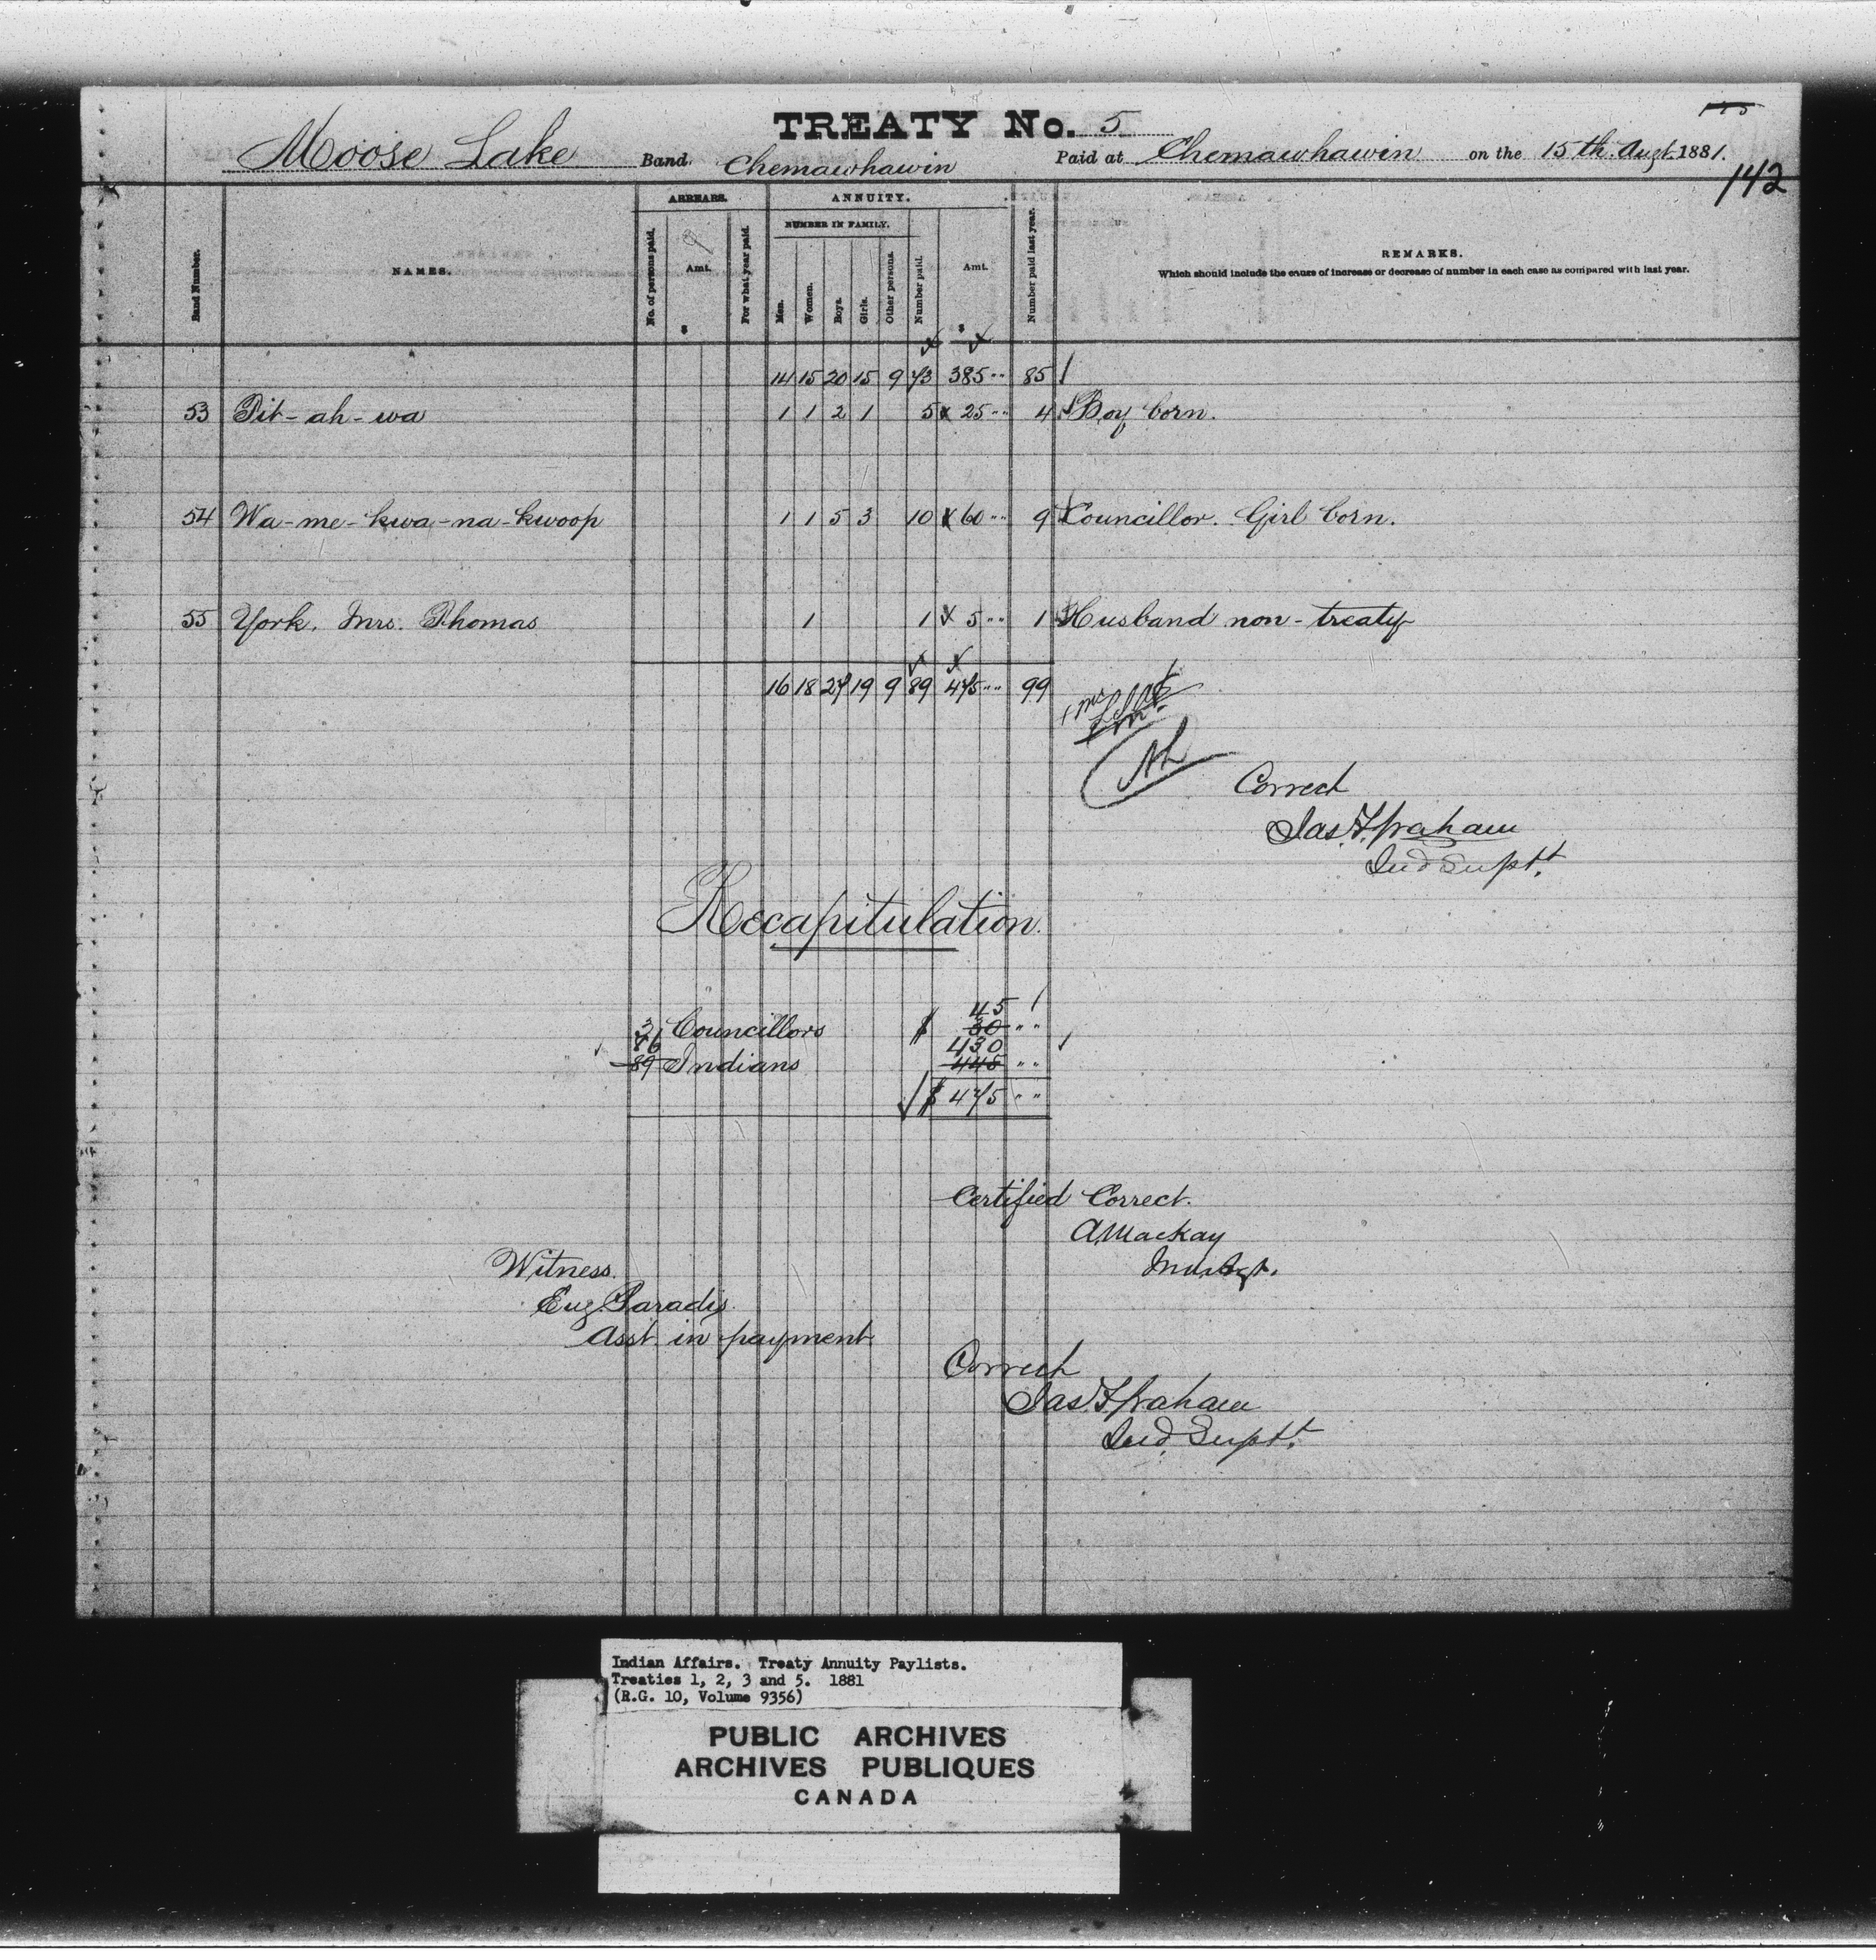 TREATY No. 5
Moose Lake Band. Chemawhawin Paid at Chemawhawin on the 15th Augt. 1881.
142
ARREARS. ANNUITY.
NUMBER IN FAMILY.
Band Number. NAMES. No. of persons paid. Amt. For what year paid. Men. Women. Boys. Girls. Other persons. Number paid. Amt. Number paid last year. REMARKS.
Which should include the cause of increase or decrease of number in each case as compared with last year.
$ $
14 15 20 15 9 73 385 " 85
53 Pit-ah-wa 1 1 2 1 5 25 " 4 Boy born.
54 Wa-me-kwa-na-kwoop 1 1 5 3 10 60 " 9 Councillor. Girl born.
55 York, Mrs. Thomas 1 1 5 " 1 Husband non-treaty
16 18 27 19 9 89 475 " 99
Correct
Jas. F. Graham
Ind Supt.
Recapitulation.
45
3 Councillors $ 30 "
86 430
89 Indians 445 "
$ 475 "
Certified Correct.
A Mackay
Ind. Agt.
Witness.
Eug. Paradis.
Asst. in payment.
Correct
Jas. F. Graham
Ind. Supt.
Indian Affairs. Treaty Annuity Paylists.
Treaties 1, 2, 3 and 5. 1881
(R.G. 10, Volume 9356)
PUBLIC ARCHIVES
ARCHIVES PUBLIQUES
CANADA